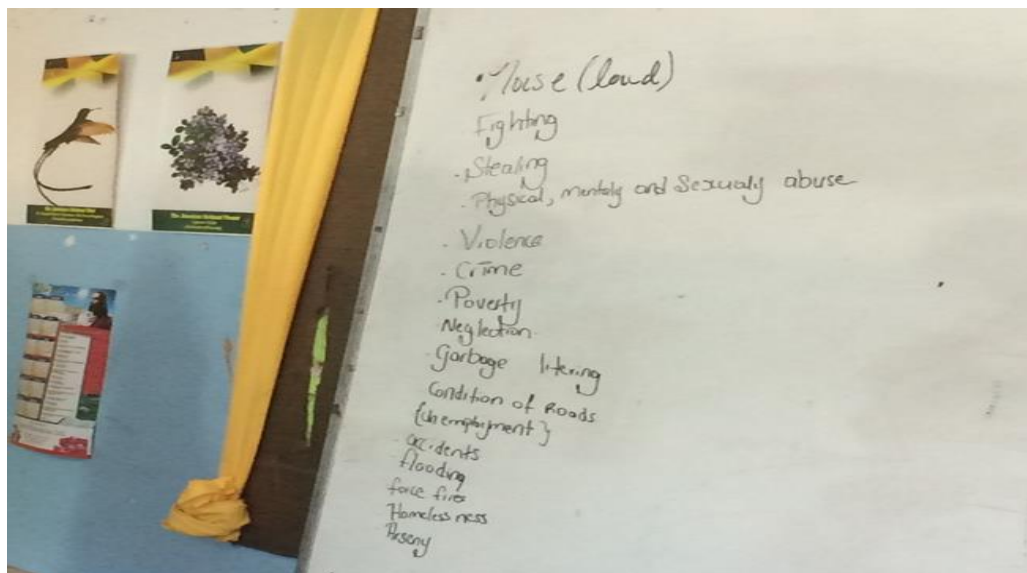 The Jamaican National Flower
• Noise (loud)
Fighting
. Stealing
. Physical, mentaly and Sexualy abuse
. Violence
. Crime
. Poverty
Neglection.
. Garbage litering
Condition of Roads
{Unemployment}
accidents
flooding
force fires
Homelessness
Arseny